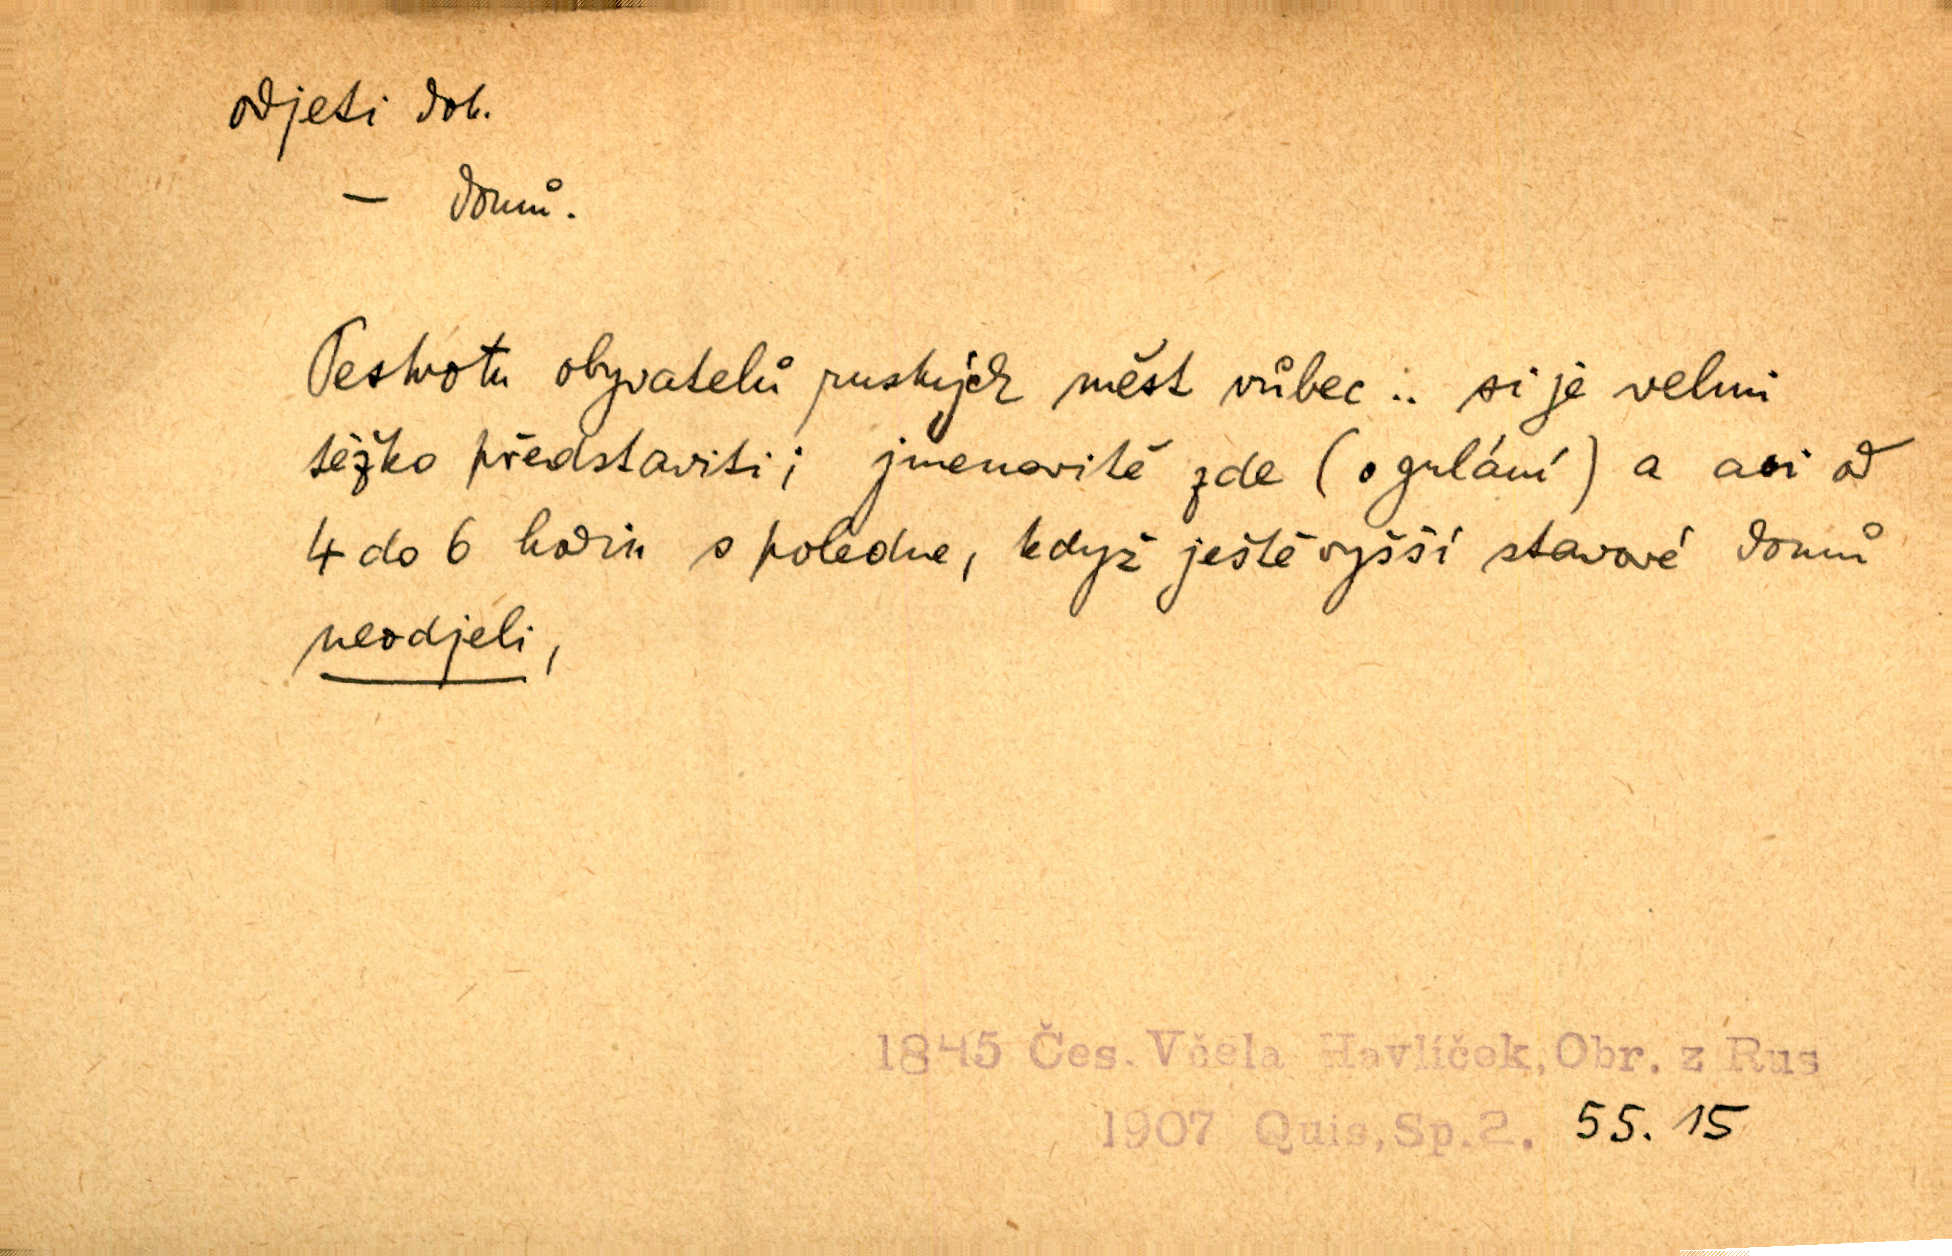 odjeti dok.
— domů.
Pestrotu obyvatelů ruských měst vůbec .. si je velmi
těžko představiti; jmenovitě zde (o gulání) a asi od
4 do 6 hodin s poledne, když ještě vyšší stavové domů
neodjeli,
1845 Čes. Včela Havlíček, Obr. z Rus
1907 Quis, Sp. 2. 55. 15